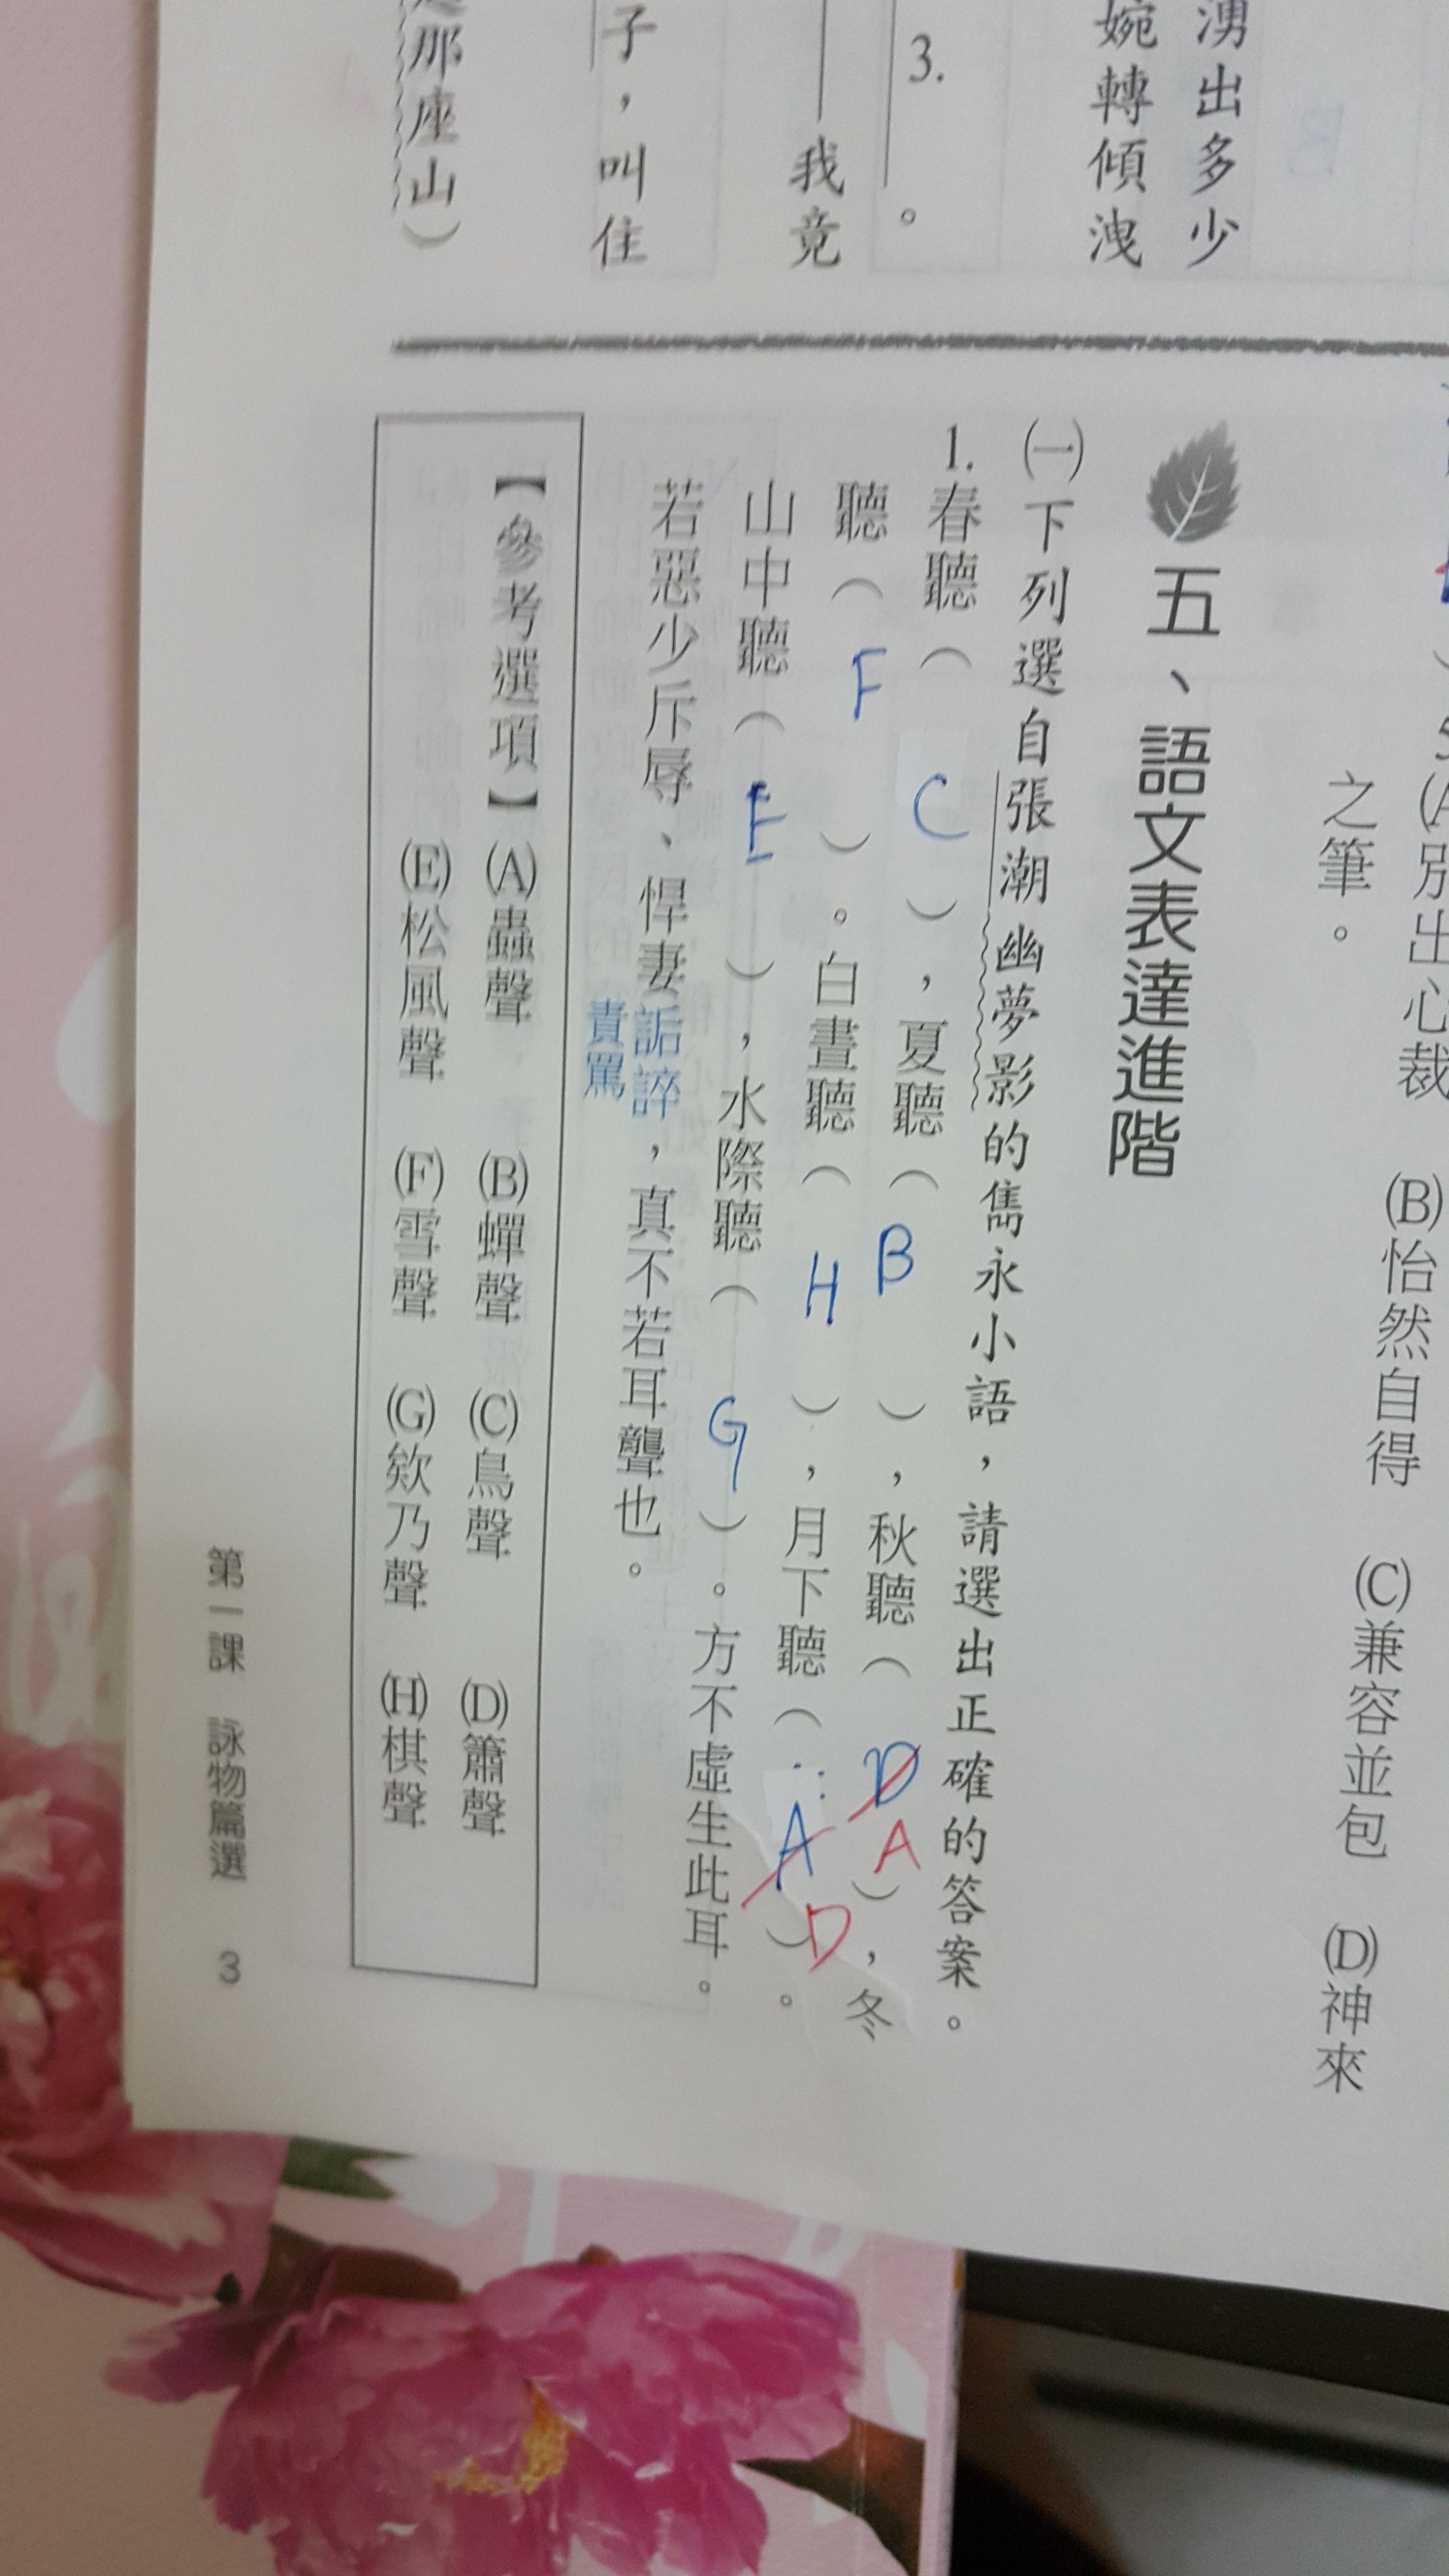 湧出多少
婉轉傾洩
3.
。
我竟
子，叫住
那座山）
(A)別出心裁 (B)怡然自得 (C)兼容並包 (D)神來
之筆。
五、語文表達進階
㈠下列選自張潮幽夢影的雋永小語，請選出正確的答案。
1.春聽（C），夏聽（B），秋聽（D A），冬
聽（F）。白晝聽（H），月下聽（A D）。
山中聽（E），水際聽（G）。方不虛生此耳。
若惡少斥辱、悍妻詬誶，真不若耳聾也。
責罵
【參考選項】(A)蟲聲 (B)蟬聲 (C)鳥聲 (D)簫聲
(E)松風聲 (F)雪聲 (G)欸乃聲 (H)棋聲
第一課 詠物篇選 3